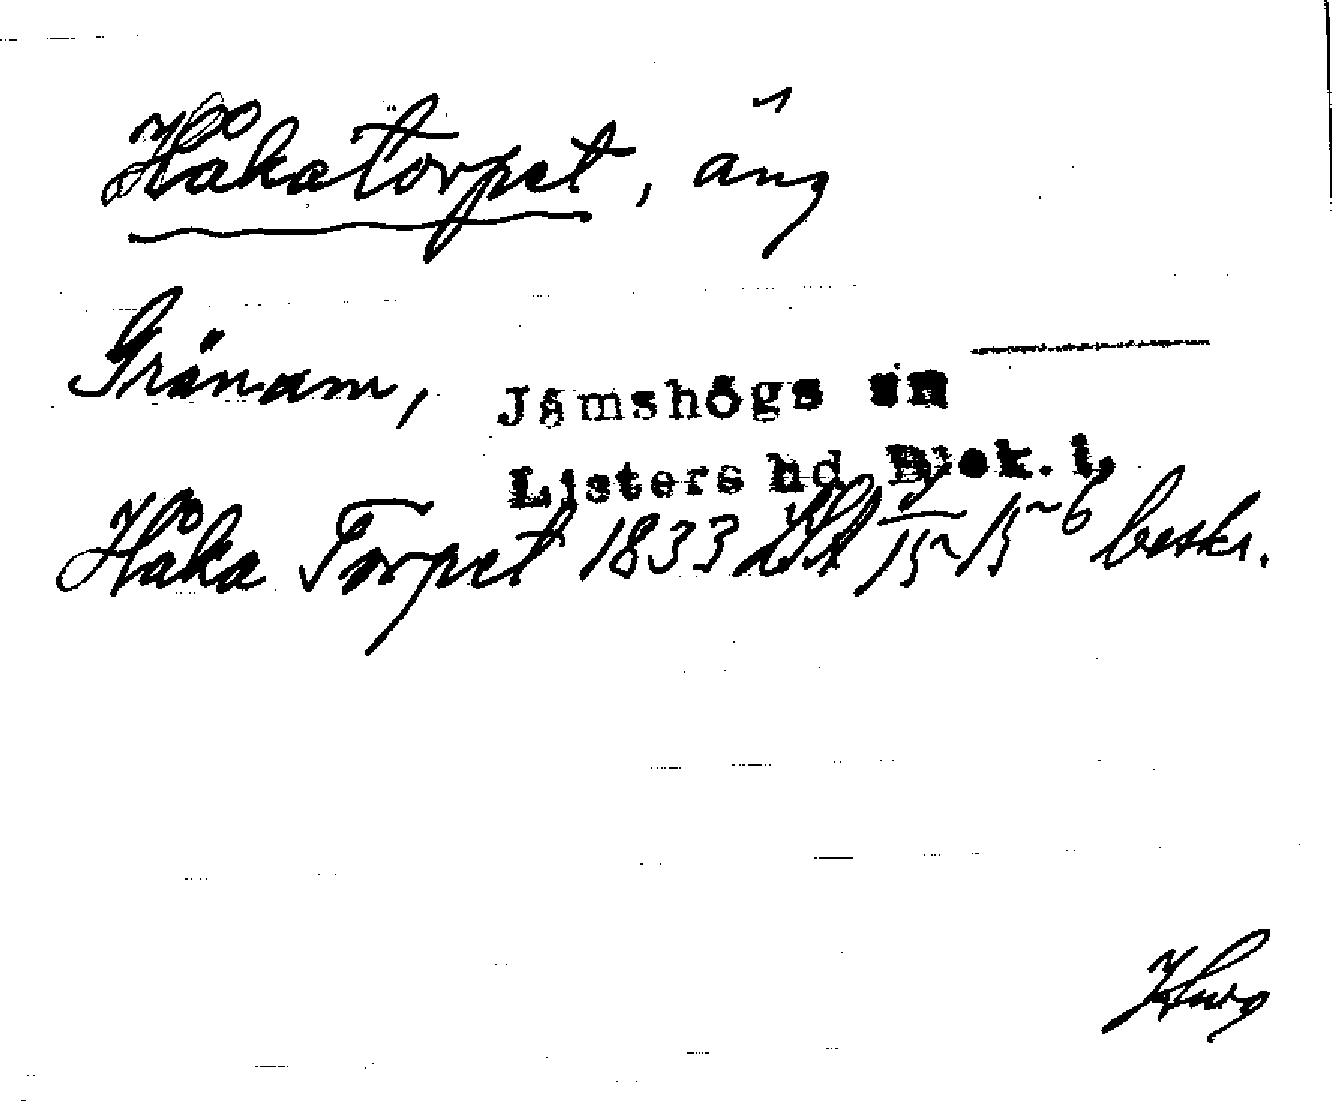 Håkatorpet, äng
Gränam,
Jämshögs sn
Listers hd Blek. l.
Håka Torpet 1833 beskr.